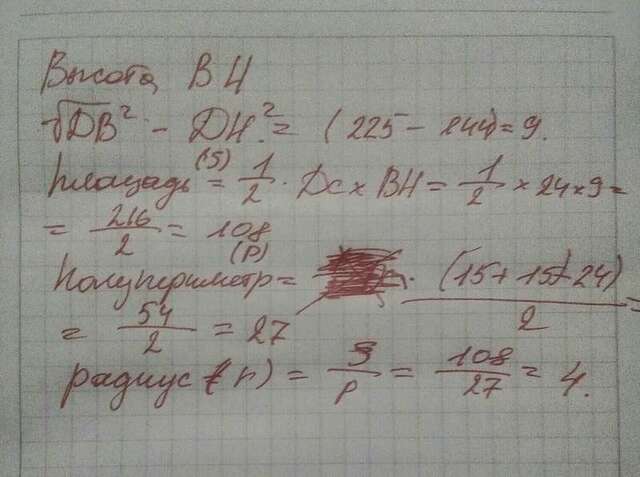 Высота BH
√DB² - DH² = (225 - 144) = 9.
Площадь (S) = 1/2 · DC × BH = 1/2 × 24 × 9 =
= 216/2 = 108
Полупериметр (P) = (15 + 15 + 24)/2 =
= 54/2 = 27
радиус (r) = S/P = 108/27 = 4.